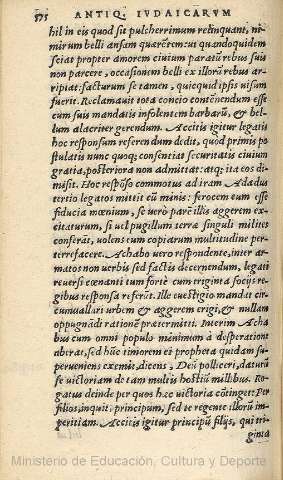 575 ANTIQ. IVDAICARVM
hil in eis quod sit pulcherrimum relinquant, ni-
mirum belli ansam quærẽtem: ut quandoquidem
sciat propter amorem ciuium paratũ rebus suis
non parcere, occasionem belli ex illorũ rebus ar-
ripiat: facturum se tamen, quicquid ipsis uisum
fuerit. Reclamauit tota concio contẽnendum esse
cum suis mandatis insolentem barbarũ, & bel-
lum alacriter gerendum. Accitis igitur legatis
hoc responsum referendum dedit, quod primis po-
stulatis nunc quoq; consentiat securitatis ciuium
gratia, posteriora non admittat: atq; ita eos di-
misit. Hoc respõso commotus ad iram Adadus
tertio legatos mittit cũ minis: ferocem eum esse
fiducia mœnium, se uerò paret illis aggerem ex-
citaturum, si uel pugillum terræ singuli milites
conferãt, uolens eum copiarum multitudine per-
terrefacere. Achabo uero respondente, inter ar-
matos non uerbis sed factis decernendum, legati
reuersi cœnanti tum fortè cum triginta socijs re-
gibus responsa referũt. Ille cuestigio mandat cir-
cumuallari urbem & aggerem erigi, & nullam
oppugnãdi rationẽ prætermitti. Interim Acha-
bus cum omni populo minimum à desperatione
aberat, sed hũc timorem ei propheta quidam su-
perueniens exemit, dicens, Deũ polliceri, daturũ
se uictoriam de tam multis hostiũ millibus. Ro-
gatus deinde per quos hæc uictoria cõtinget: Per
filios, inquit, principum, sed te regente illorũ im-
peritiam. Accitis igitur principũ filijs, qui tri-
ginta
Ministerio de Educación, Cultura y Deporte